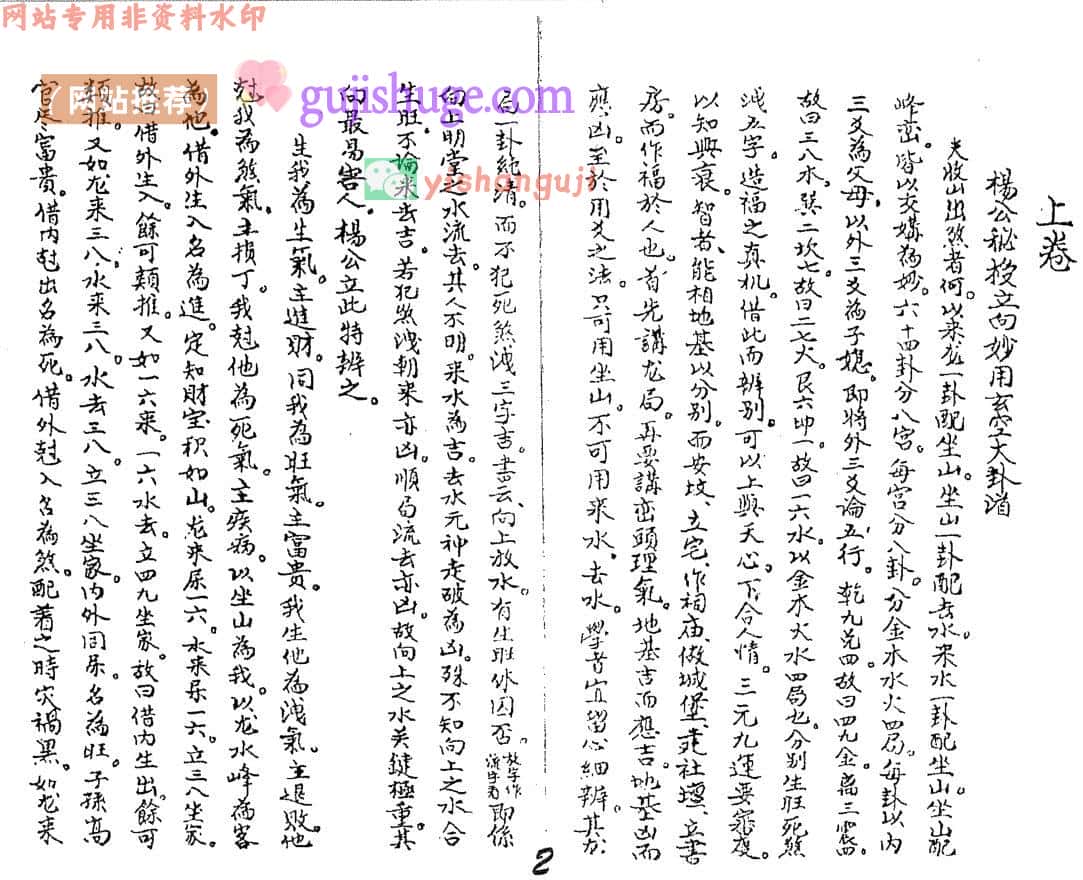 网站专用非资料水印
(网站推荐)
gujishuge.com
yishanguji
上卷
楊公秘授立向妙用玄空大卦消
夫收山出煞者何。以来龙一卦配坐山。坐山一卦配去水。来水一卦配坐山。坐山配
峰峦。皆以交媾為妙。六十四卦分八宮。每宮分八卦。分金木水火四局。每卦以内
三爻為父母。以外三爻為子媳。即將外三爻論五行。乾九兑四故曰四九金。离三震八
故曰三八木。巽二坎七故曰二七火。艮六坤一故曰一六水。以金木火水四局也。分别生旺死煞
洩五字。造福之真机。借此而辨别。可以上與天心。下合人情。三元九運要窮度。
以知興衰。智者能相地基以分别。而安坟、立宅、作祠庙、做城堡、建社壇、立書
房。而作福於人也。首先講龙局。再要講峦頭理氣。地基吉而應吉。地基凶而
應凶。至於用爻之法。只可用坐山。不可用来水、去水。學者宜留心細辨。其如
局一卦純清。而不犯死煞洩三字吉。書云、向上放水。有生旺休囚否。放字作流字看即係
向上明堂之水流去。其人不明。来水為吉。去水元神走破為凶。殊不知向上之水合
生旺。不論来去吉。若犯煞洩朝来亦凶。順局流去亦凶。故向上之水关鍵極重。其
向最易害人。楊公立此特辨之。
生我為生氣。主進財。同我為旺氣。主富贵。我生他為洩氣。主退败。他
尅我為煞氣。主損丁。我尅他為死氣。主疾病。以坐山為我。以龙水峰為客
為他。借外生入名為進。定知財宝积如山。龙来属一六。水来属一六。立三八坐家。
故曰借外生入。餘可類推。又如一六来。一六水去。立四九坐家。故曰借内生出。餘可
類推。又如龙来三八。水来三八。水去三八。立三八坐家。内外同属名為旺。子孫高
官尽富貴。借内尅出名為死。借外尅入名為煞。配着之時灾禍黑。如龙来
2